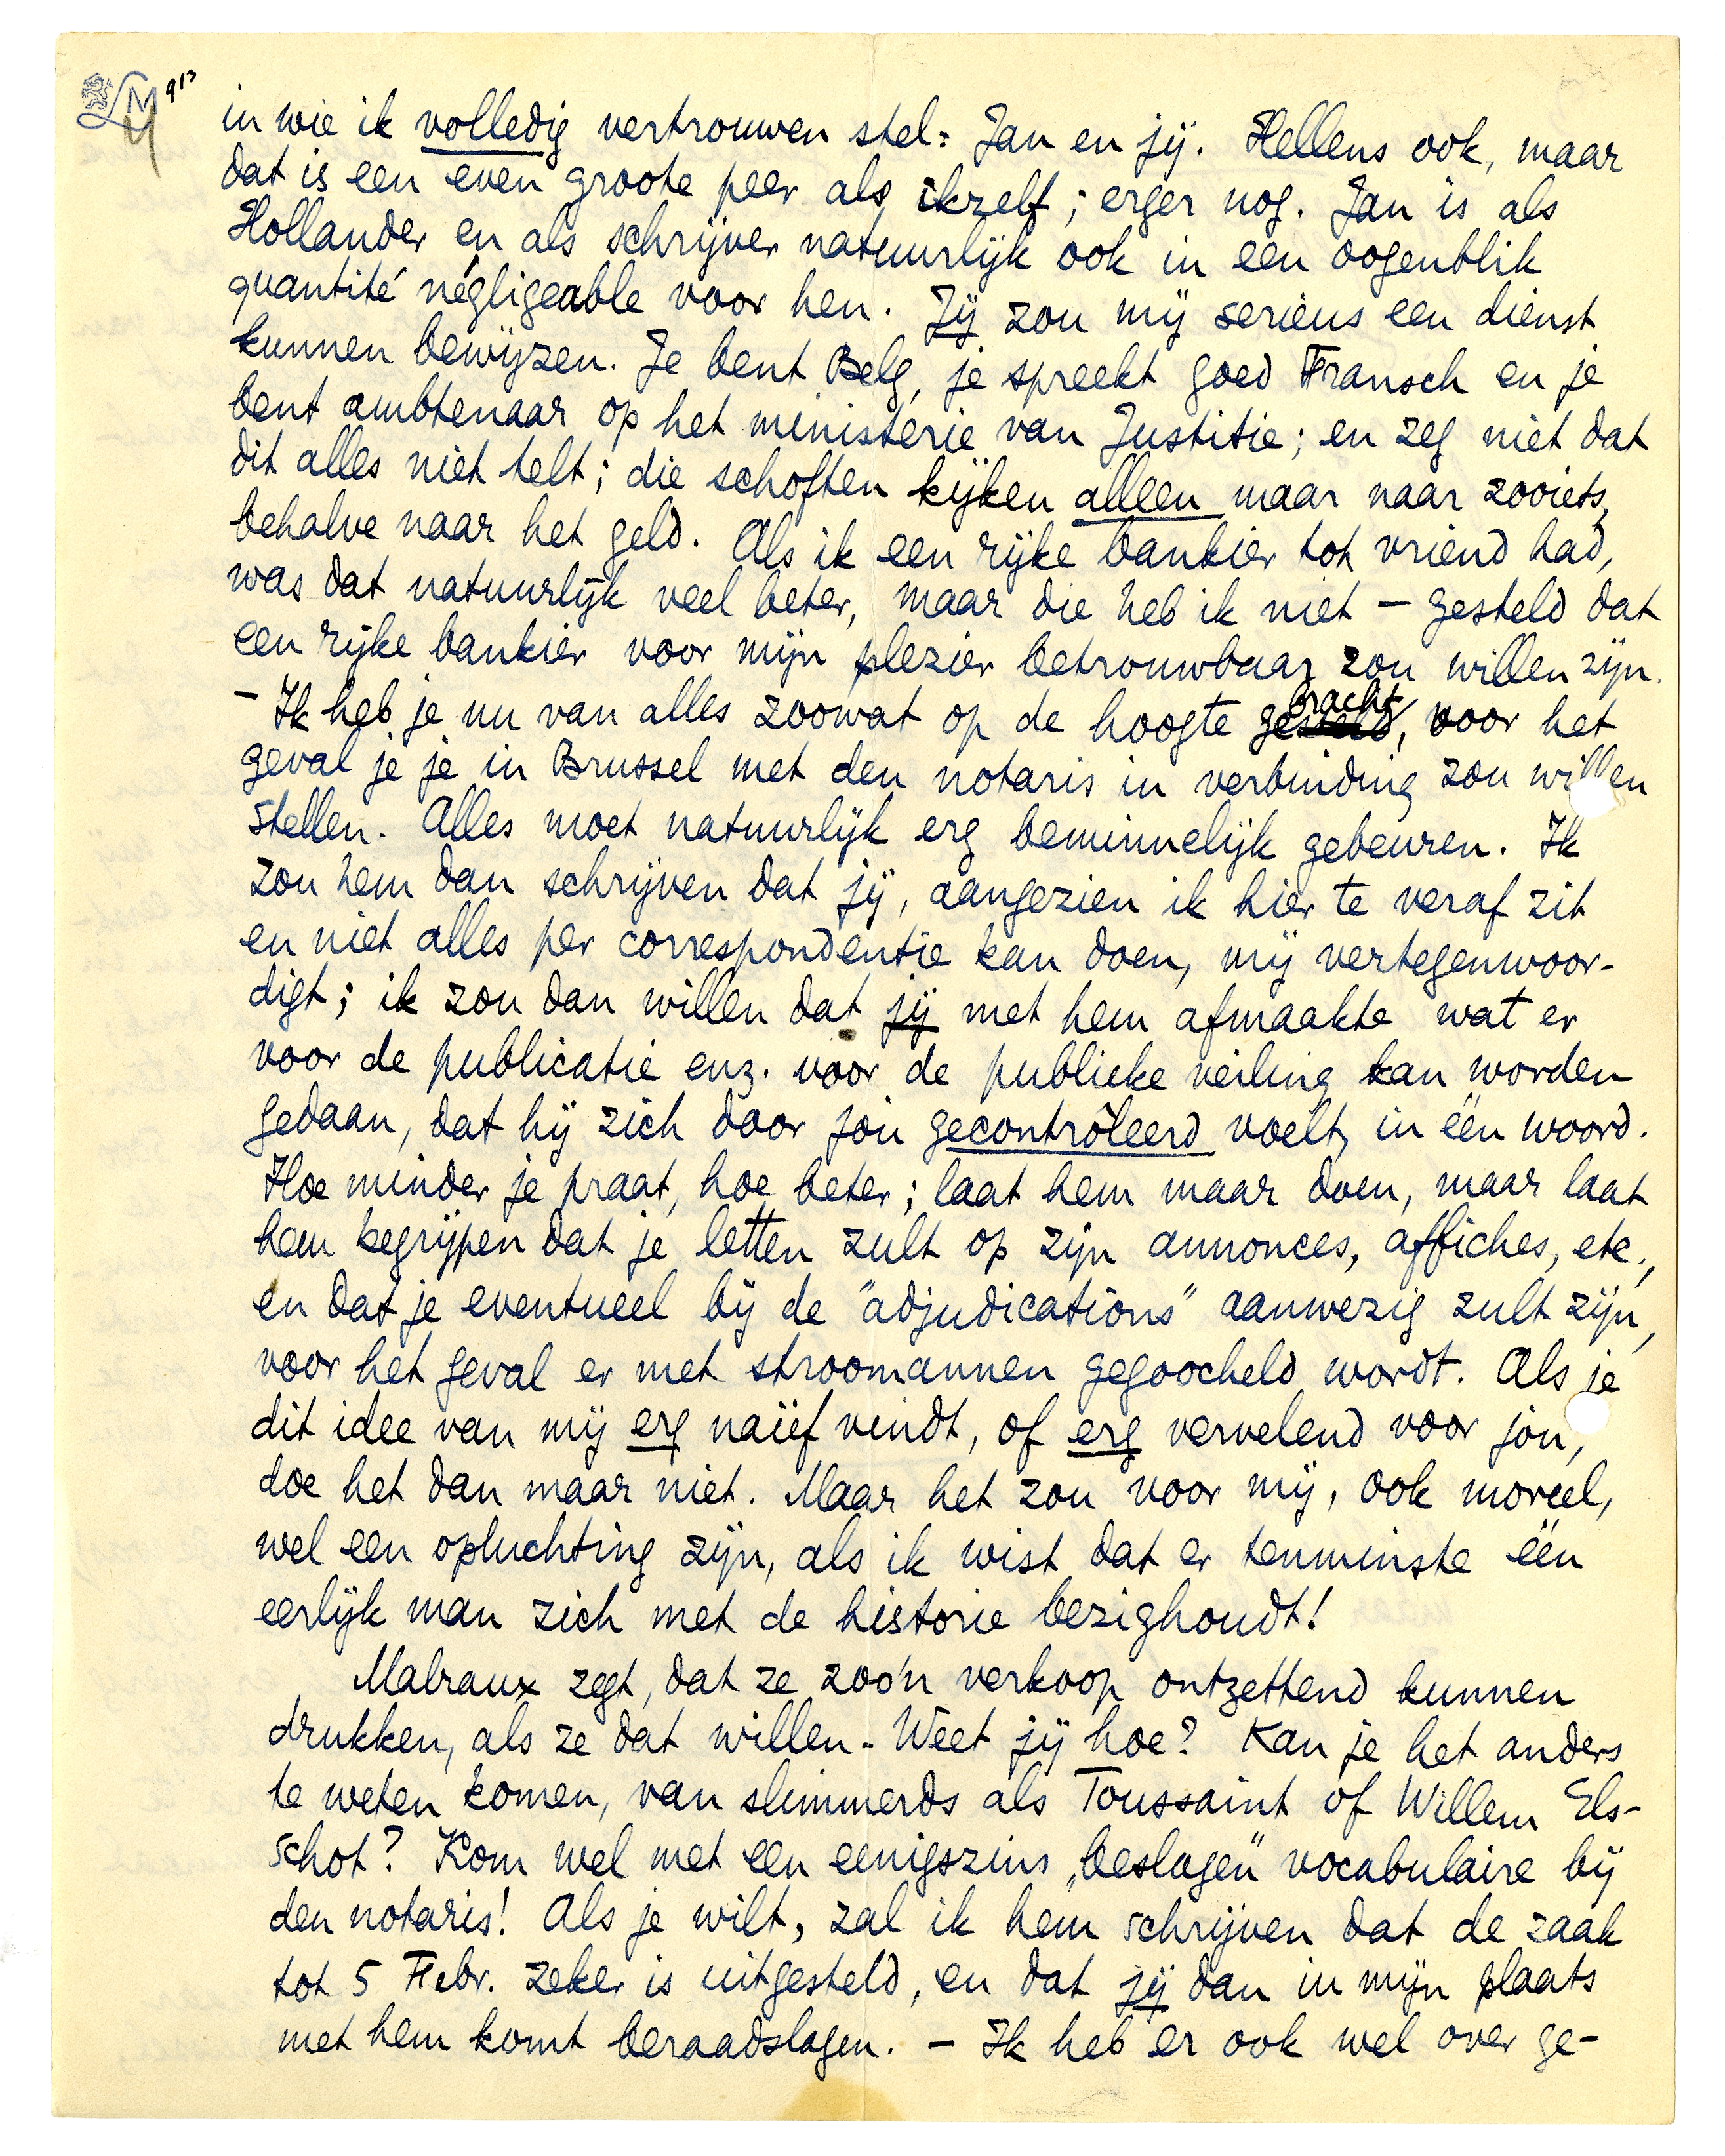 LM 913
in wie ik volledig vertrouwen stel: Jan en jij. Hellens ook, maar
dat is een even groote peer als ikzelf; erger nog. Jan is als
Hollander en als schrijver natuurlijk ook in een oogenblik
quantité négligeable voor hen. Jij zou mij serieus een dienst
kunnen bewijzen. Je bent Belg, je spreekt goed Fransch en je
bent ambtenaar op het ministerie van Justitie; en zeg niet dat
dit alles niet telt; die schoften kijken alleen maar naar zooiets,
behalve naar het geld. Als ik een rijke bankier tot vriend had,
was dat natuurlijk veel beter, maar die heb ik niet – gesteld dat
een rijke bankier voor mijn plezier betrouwbaar zou willen zijn.
– Ik heb je nu van alles zoowat op de hoogte gebracht, voor het
geval je je in Brussel met den notaris in verbinding zou willen
stellen. Alles moet natuurlijk erg beminnelijk gebeuren. Ik
zou hem dan schrijven dat jij, aangezien ik hier te veraf zit
en niet alles per correspondentie kan doen, mij vertegenwoor-
digt; ik zou dan willen dat jij met hem afmaakte wat er
voor de publicatie enz. voor de publieke veiling kan worden
gedaan, dat hij zich door jou gecontrôleerd voelt, in één woord.
Hoe minder je praat, hoe beter; laat hem maar doen, maar laat
hem begrijpen dat je letten zult op zijn annonces, affiches, etc.,
en dat je eventueel bij de "adjudications" aanwezig zult zijn,
voor het geval er met stroomannen gegoocheld wordt. Als je
dit idee van mij erg naïef vindt, of erg vervelend voor jou,
doe het dan maar niet. Maar het zou voor mij, ook moreel,
wel een opluchting zijn, als ik wist dat er tenminste één
eerlijk man zich met de historie bezighoudt!
Malraux zegt, dat ze zoo'n verkoop ontzettend kunnen
drukken, als ze dat willen. Weet jij hoe? Kan je het anders
te weten komen, van slimmerds als Toussaint of Willem Els-
schot? Kom wel met een eenigszins „beslagen" vocabulaire bij
den notaris! Als je wilt, zal ik hem schrijven dat de zaak
tot 5 Febr. zeker is uitgesteld, en dat jij dan in mijn plaats
met hem komt beraadslagen. – Ik heb er ook wel over ge-